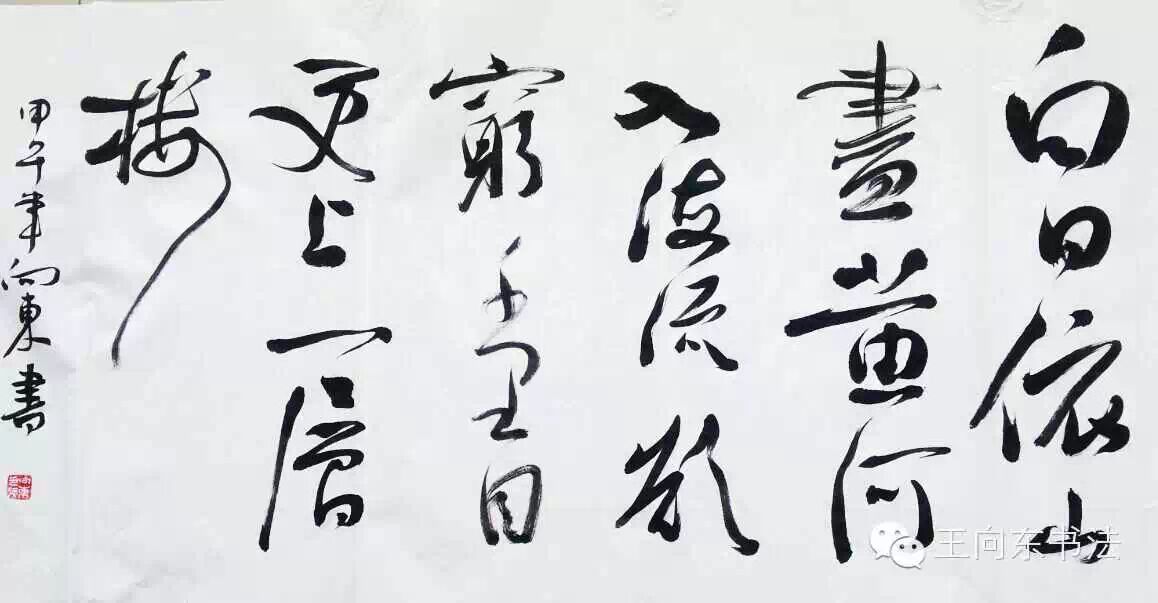 白日依山
盡黃河
入海流欲
窮千里目
更上一層
樓
甲午年向東書
王向东书法